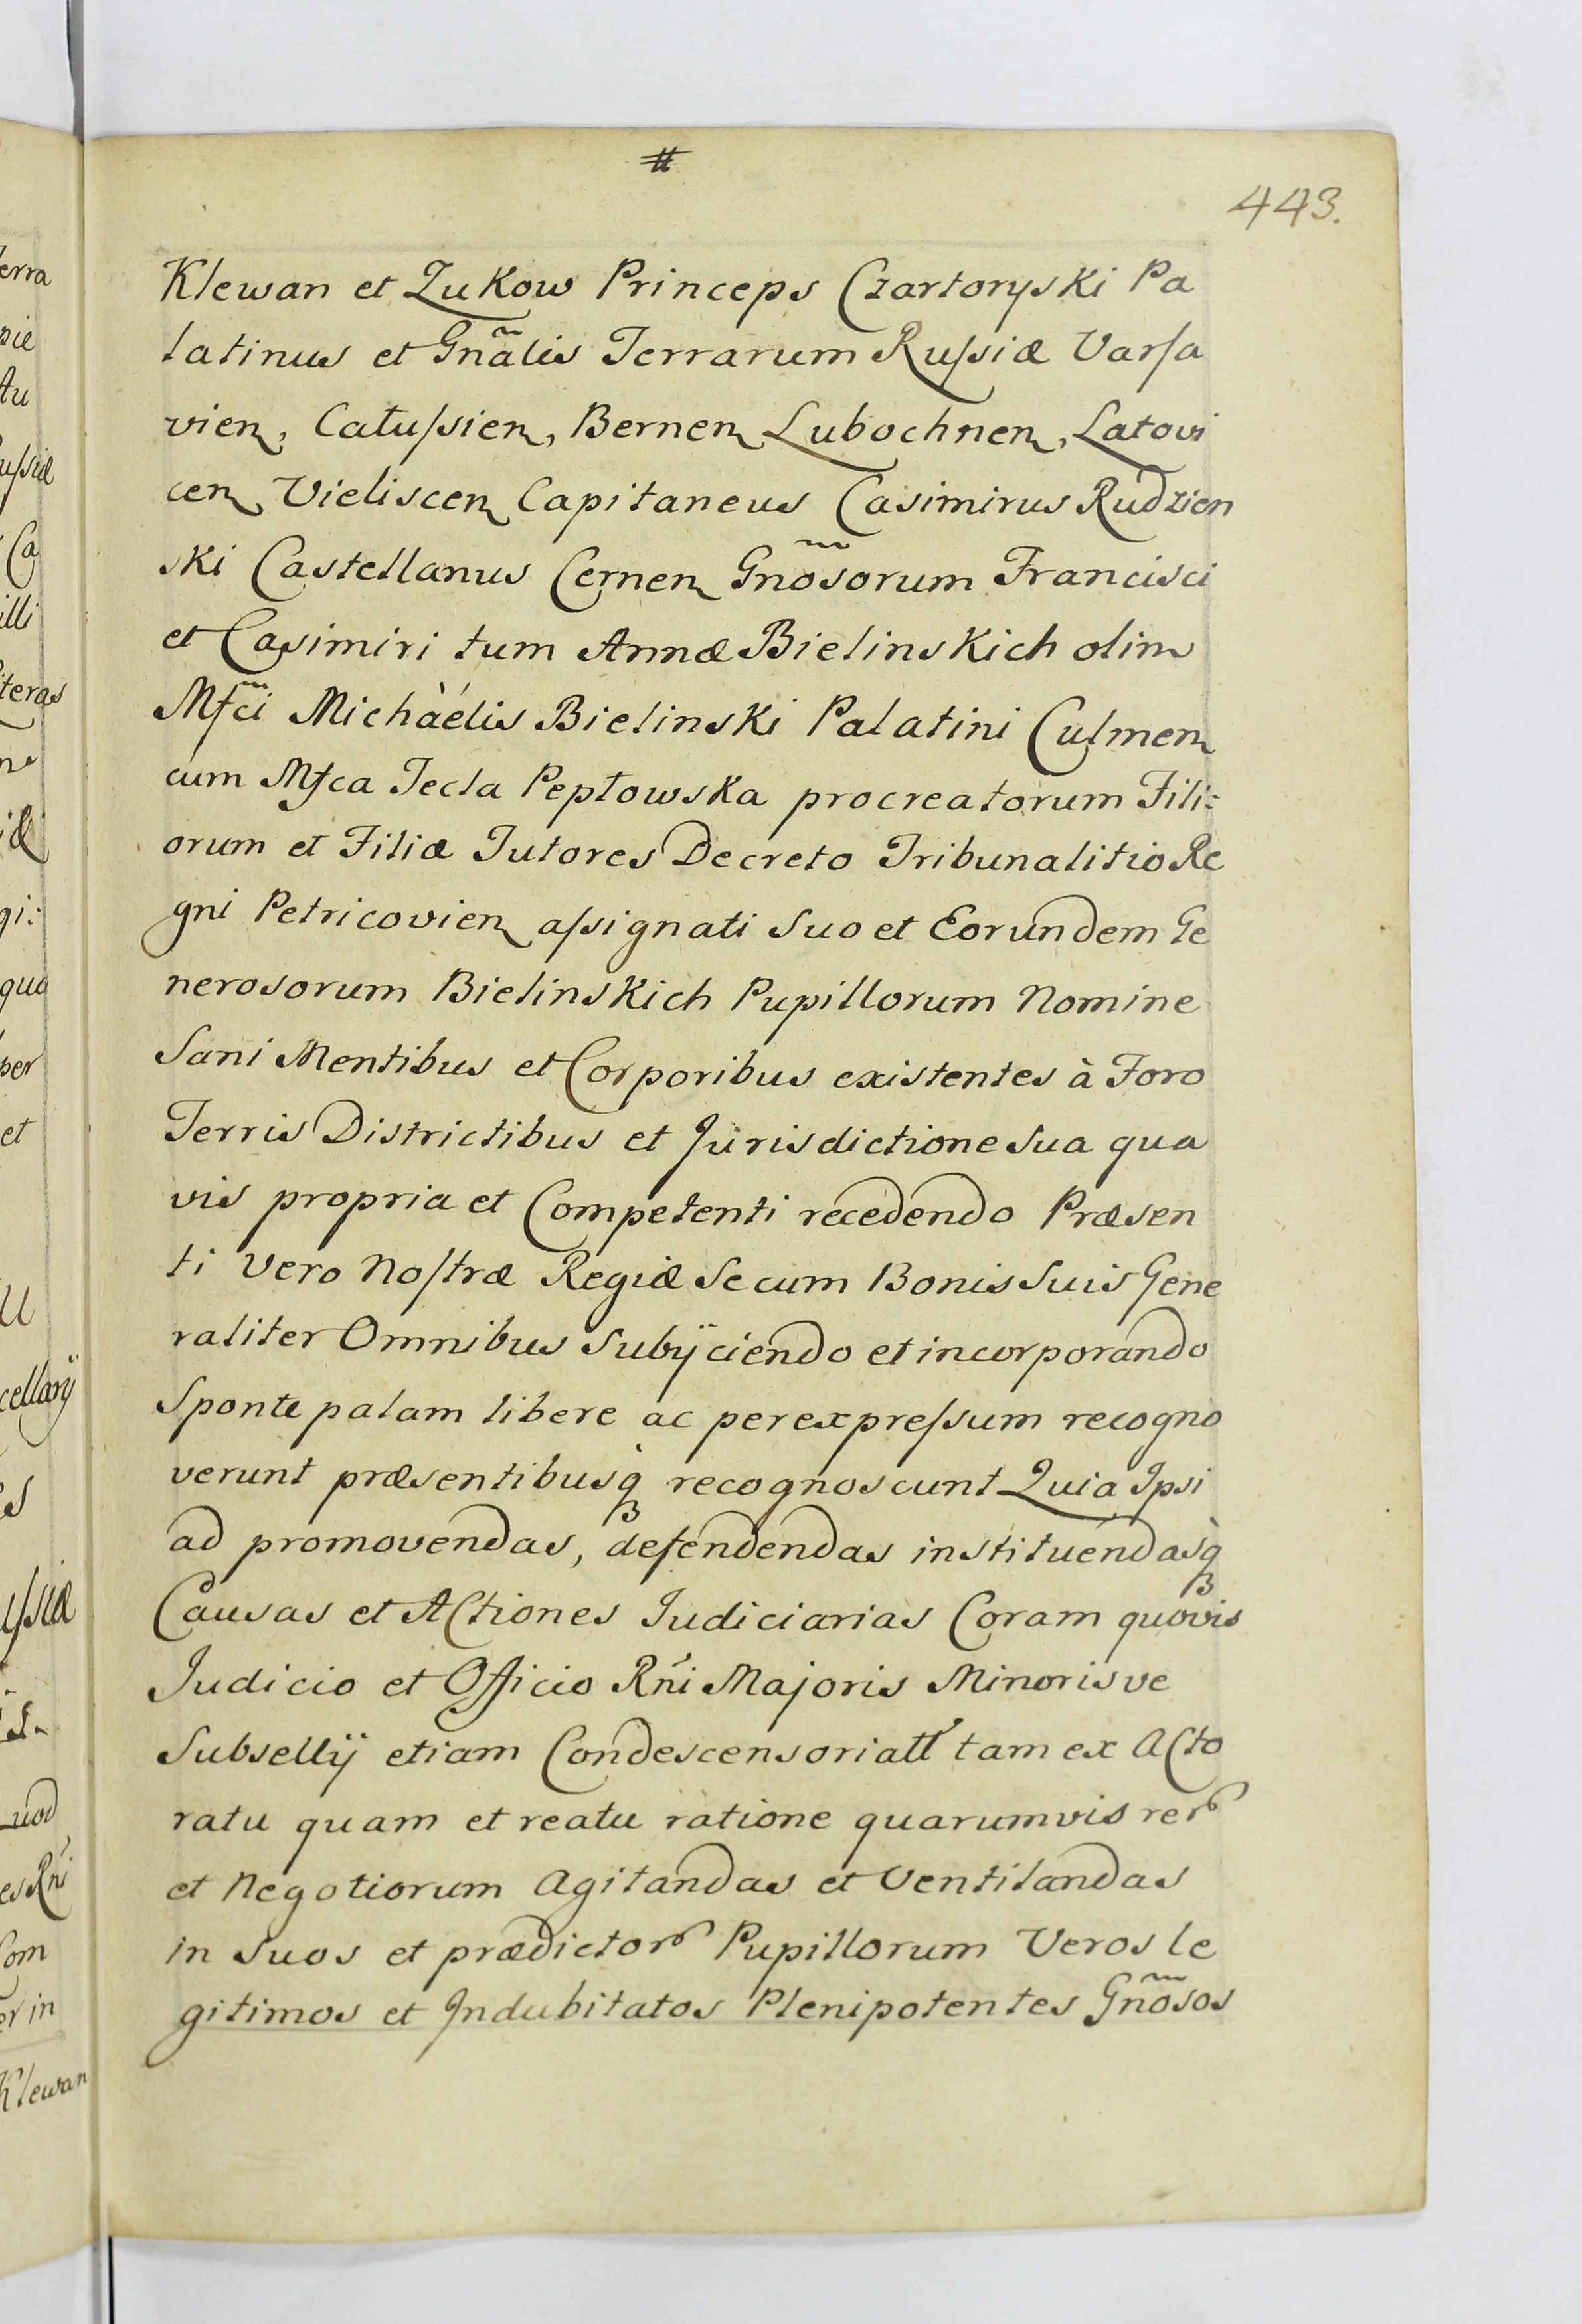 #
443.
Klewan et Zukow Princeps Czartoryski Pa
latinus et Gnãlis Terrarum Rußiæ Varsa
vien, Catußien, Bernen Lubochnen, Latovi
cen Vieliscen Capitaneus Casimirus Rudzien
ski Castellanus Cernen Gnõsorum Francisci
et Casimiri tum Annæ Bielinskich olim
Mfci Michàélis Bielinski Palatini Culmen
cum Mfca Tecla Pepłowska procreatorum Fili:
orum et Filiæ Tutores Decreto Tribunalitio Re
gni Petricovien aßignati Suo et Eorundem Ge
nerosorum Bielinskich Pupillorum Nomine
Sani Mentibus et Corporibus existentes à Foro
Terris Districtibus et Jurisdictione Sua qua
vis propria et Competenti recedendo Præsen
ti Vero Nostræ Regiæ Se cum Bonis Suis Gene
raliter Omnibus Subijciendo et incorporando
Sponte palam libere ac per expreßum recogno
verunt præsentibusq recognoscunt Quia Ipsi
ad promovendas, defendendas instituendasq
Causas et Actiones Judiciarias Coram quovis
Judicio et Officio Rńi Majoris Minorisve
Subsellij etiam Condescensoriall tam ex Acto
ratu quam et reatu ratione quarumvis rer
et Negotiorum Agitandas et Ventilandas
in Suos et prædictor Pupillorum Veros le
gitimos et Indubitatos Plenipotentes Gnõsos
erra
Au
Ca
illi
iteras
qua
per
et
cellarij
uod
es Rńi
om
er in
Klewan